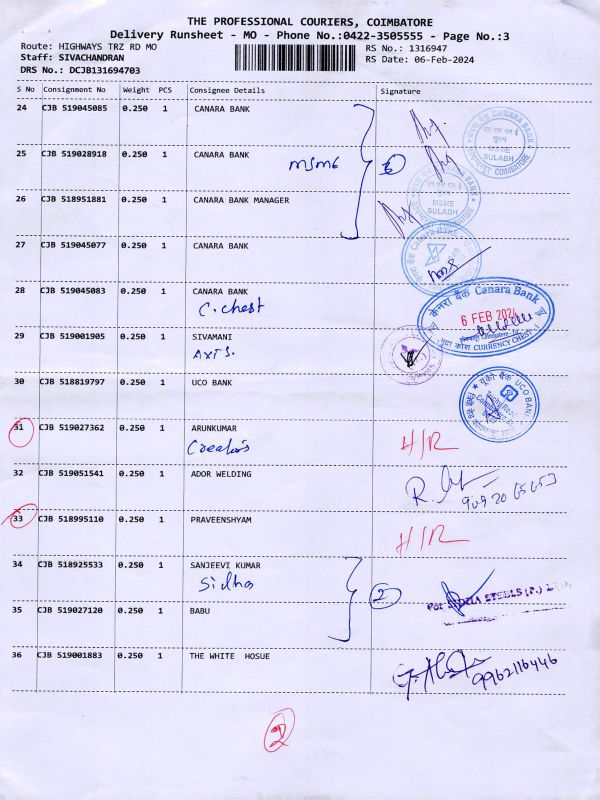 THE PROFESSIONAL COURIERS, COIMBATORE
Delivery Runsheet - MO - Phone No.:0422-3505555 - Page No.:3
Route: HIGHWAYS TRZ RD MO
RS No.: 1316947
Staff: SIVACHANDRAN
RS Date: 06-Feb-2024
DRS No.: DCJB131694703
S No Consignment No Weight PCS Consignee Details Signature
24 CJB 519045085 0.250 1 CANARA BANK
25 CJB 519028918 0.250 1 CANARA BANK
MSME
CANARA BANK
MSME
SULABH
COIMBATORE
26 CJB 518951881 0.250 1 CANARA BANK MANAGER
MSME
SULABH
27 CJB 519045077 0.250 1 CANARA BANK
Canara Bank
28 CJB 519045083 0.250 1 CANARA BANK
C. chest
केनरा बैंक Canara Bank
6 FEB 2024
CURRENCY CHEST
29 CJB 519001905 0.250 1 SIVAMANI
AXIS.
30 CJB 518819797 0.250 1 UCO BANK
यूको बैंक UCO BANK
31 CJB 519027362 0.250 1 ARUNKUMAR
H/R
32 CJB 519051541 0.250 1 ADOR WELDING
33 CJB 518995110 0.250 1 PRAVEENSHYAM
H/R
34 CJB 518925533 0.250 1 SANJEEVI KUMAR
Sidha
2
35 CJB 519027120 0.250 1 BABU
For STEELS (P.)
36 CJB 519001883 0.250 1 THE WHITE HOSUE
9962116446
2